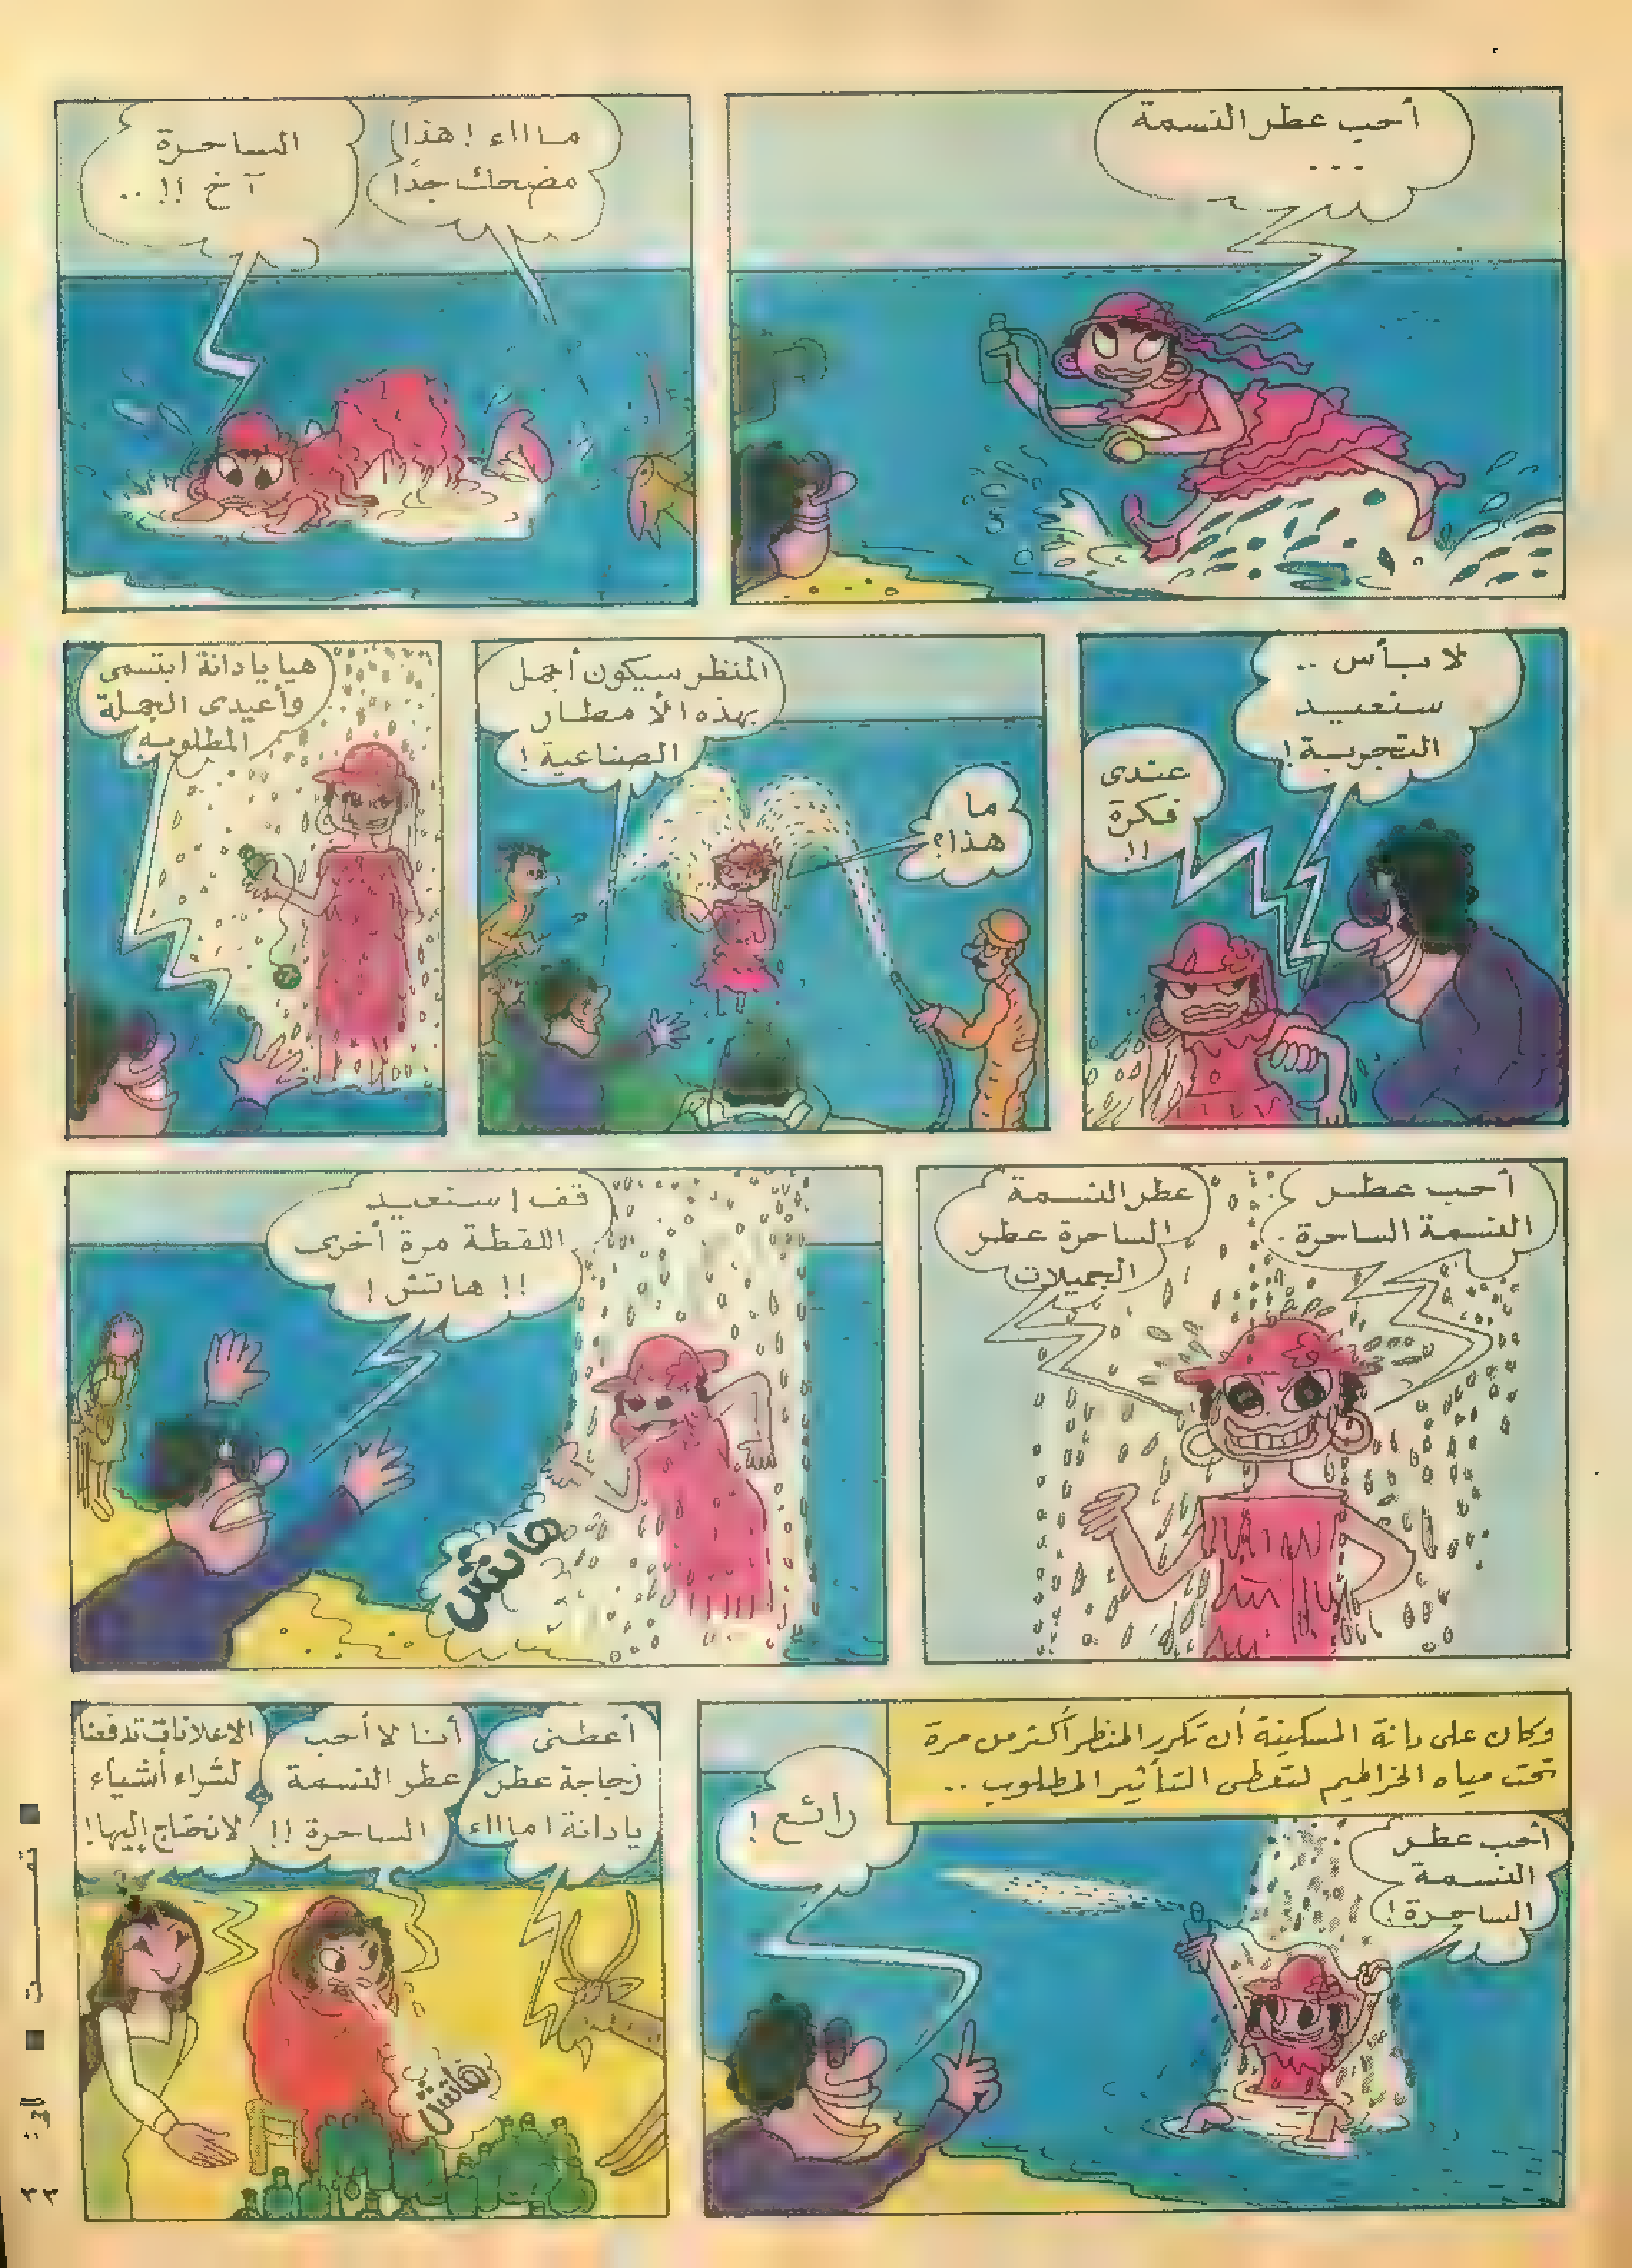 أحب عطر النسمة
...
مااااء ! هذا
مضحك جدًا
الساحرة
آخ !! ..
لا بأس ..
سنعيد
التجربة !
عندى
فكرة
!!
المنظر سيكون أجمل
بهذه الأمطار
الصناعية !
ما
هذا؟
هيا يا دانة ابتسمى
وأعيدى الجملة
المطلوبة
أحب عطر
النسمة الساحرة .
عطر النسمة
الساحرة عطر
الجميلات
قف ! سنعيد
اللقطة مرة أخرى
!! هاتش !
هاتش
وكان على دانة المسكينة أن تكرر المنظر أكثر من مرة
تحت مياه الخراطيم لتعطى التأثير المطلوب ..
أحب عطر
النسمة
الساحرة !
رائع !
أعطنى
زجاجة عطر
يا دانة ! ماااء
أنا لا أحب
عطر النسمة
الساحرة !!
الاعلانات تدفعنا
لشراء أشياء
لا نحتاج إليها !
هاتش
■ تمـــت ■
٢٢